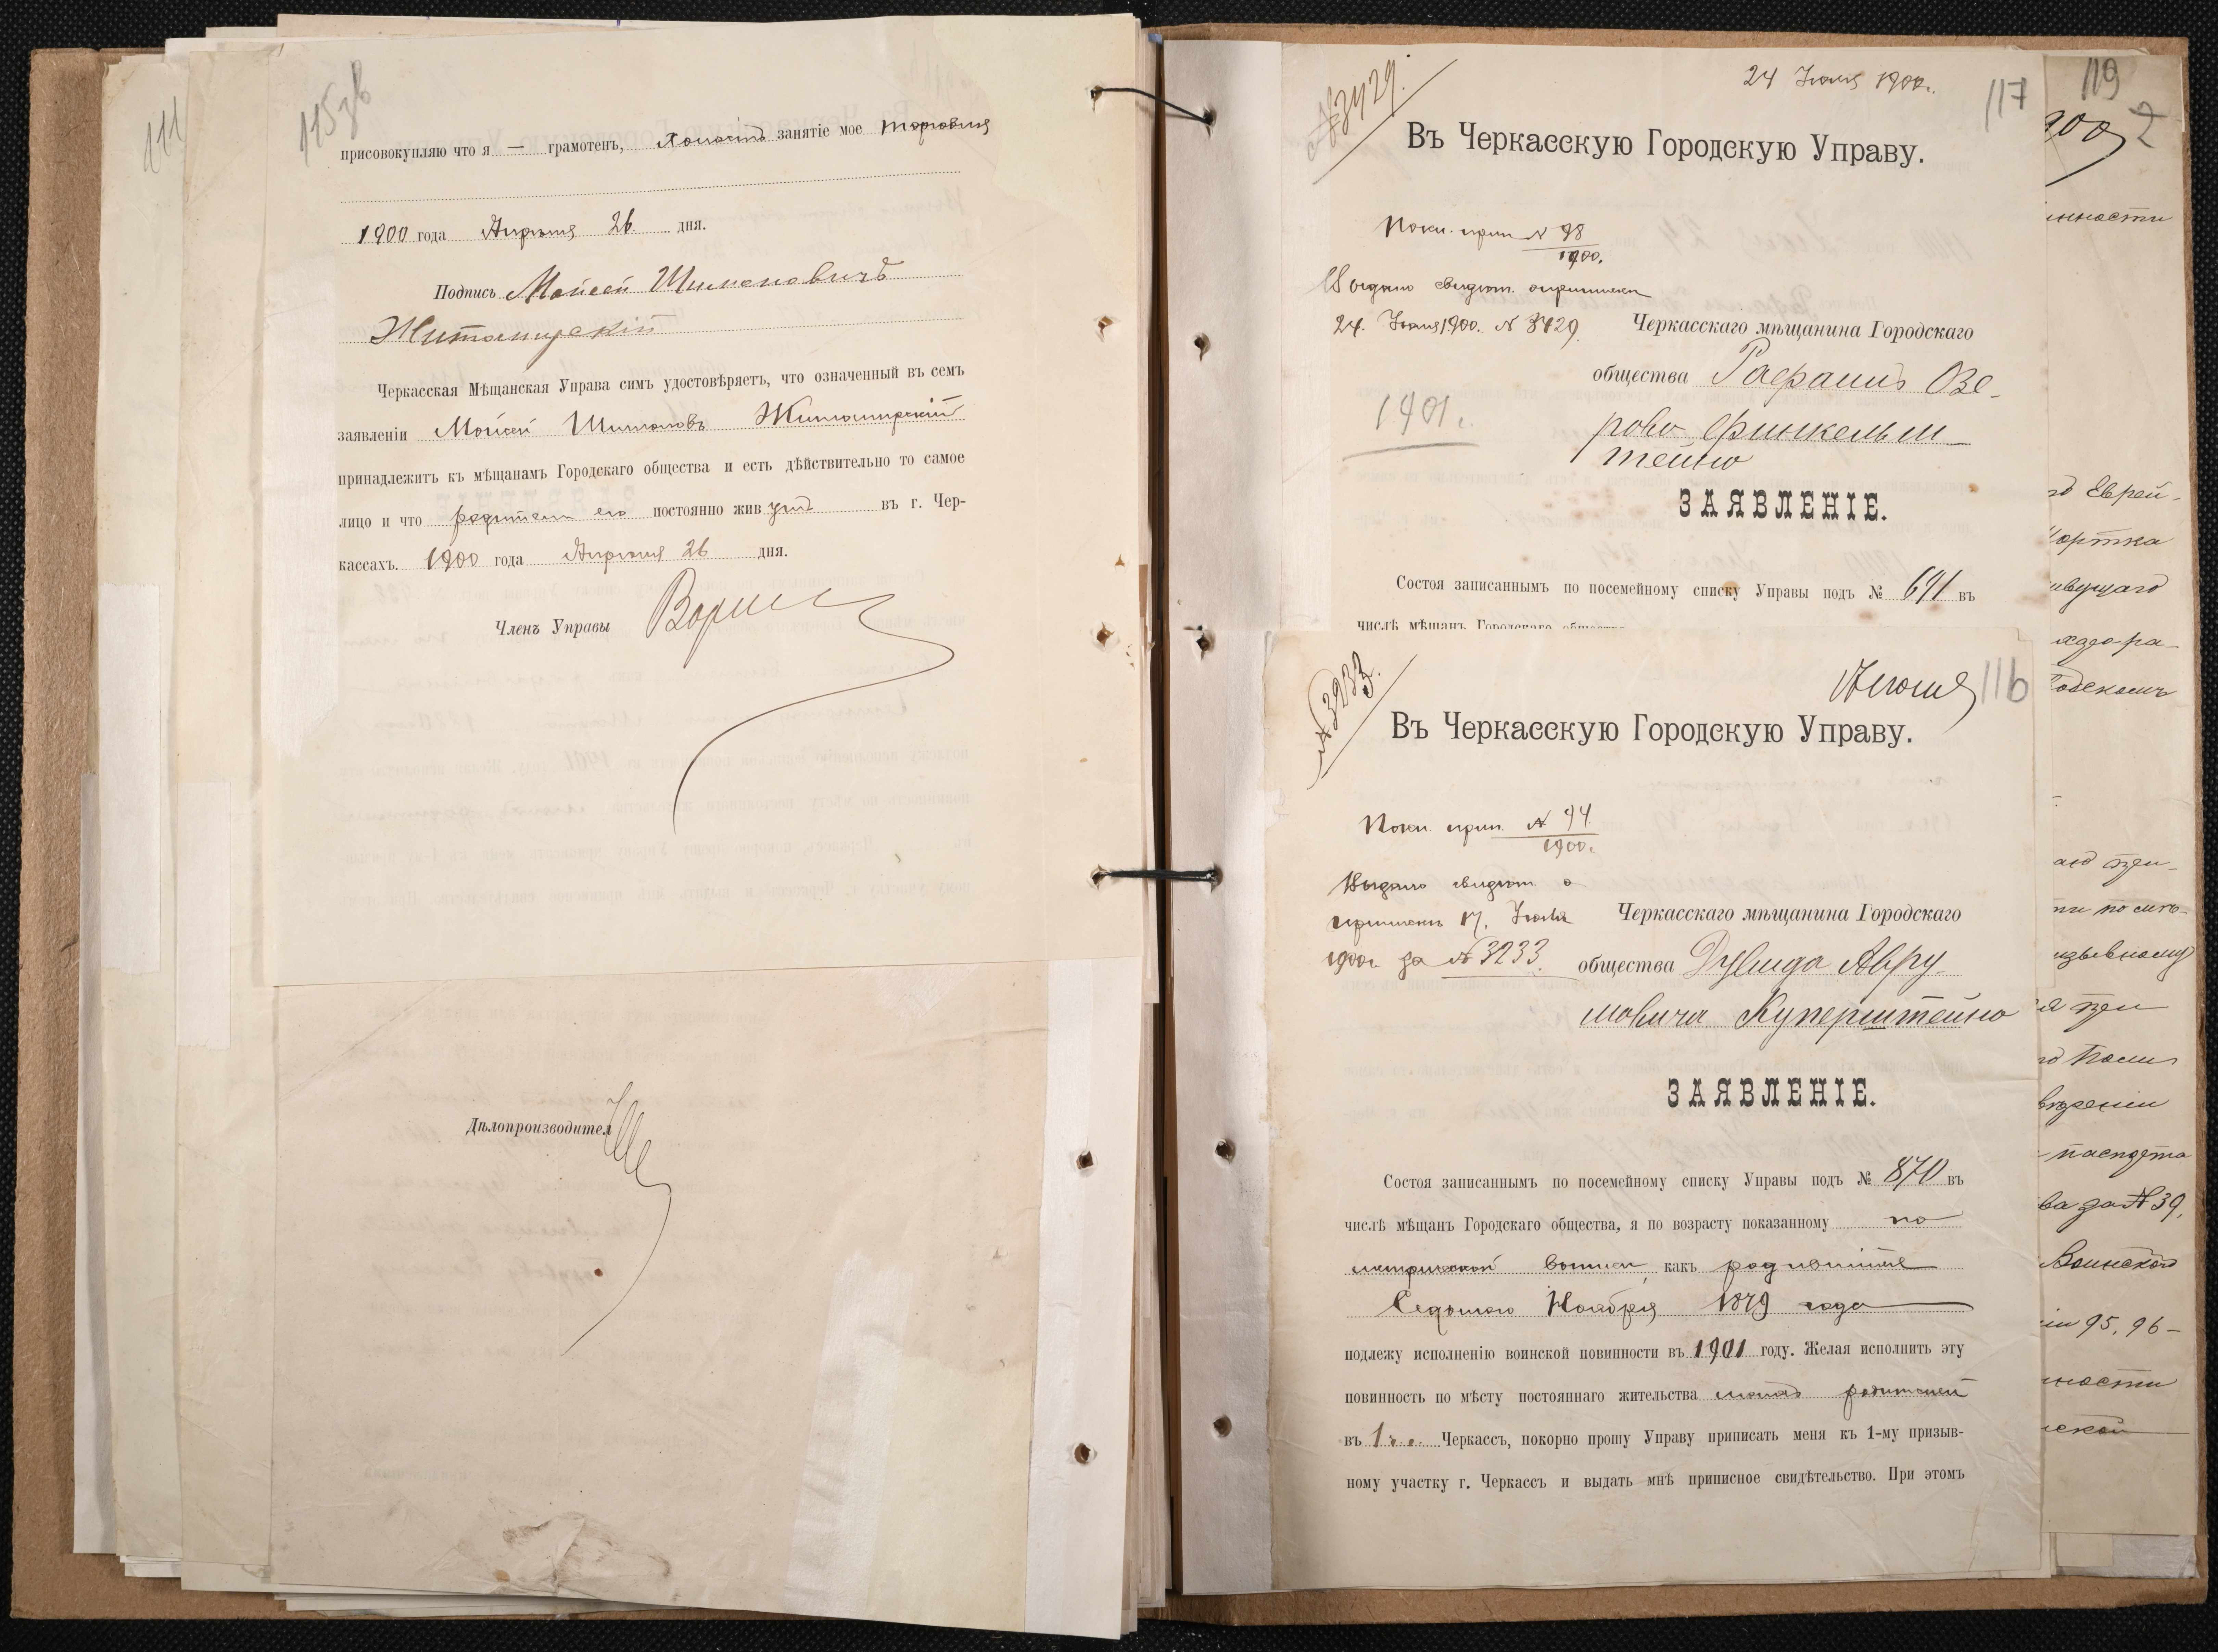 111
115зв
присовокупляю что я — грамотенъ, холостъ занятіе мое торговля
1900 года Апрѣля 26 дня.
Подпись Мойсей Шимоновичъ
Житомирскій
Черкасская Мѣщанская Управа симъ удостовѣряетъ, что означенный въ семъ
заявленіи Мойсей Шимоновъ Житомирскій
принадлежитъ къ мѣщанамъ Городскаго общества и есть дѣйствительно то самое
лицо и что родители его постоянно живутъ въ г. Чер-
кассахъ. 1900 года Апрѣля 26 дня.
Членъ Управы
Дѣлопроизводител
24 Іюля 1900г.
117
№ 3429.
Въ Черкасскую Городскую Управу.
№ 98
1900.
Выдано свидѣт. о припискѣ
24. Іюля 1900. № 3429.
Черкасскаго мѣщанина Городскаго
общества Рафаилъ Озе-
рово Финкельш-
тейно
1901 г.
ЗАЯВЛЕНІЕ.
Состоя записаннымъ по посемейному списку Управы подъ № 691 въ
числѣ мѣщанъ Городскаго общества
116
№ 3233.
Въ Черкасскую Городскую Управу.
№ 94
1900г.
Выдано свидѣт. о
припискѣ 17. Іюля
1900г. за № 3233.
Черкасскаго мѣщанина Городскаго
общества Дувида Авру-
мовича Куперштейно
ЗАЯВЛЕНІЕ.
Состоя записаннымъ по посемейному списку Управы подъ № 870 въ
числѣ мѣщанъ Городскаго общества, я по возрасту показанному по
метрической выписи, какъ родившійся
Седьмого Ноября 1879 года
подлежу исполненію воинской повинности въ 1901 году. Желая исполнить эту
повинность по мѣсту постояннаго жительства моихъ родителей
въ г. Черкассъ, покорно прошу Управу приписать меня къ 1-му призыв-
ному участку г. Черкассъ и выдать мнѣ приписное свидѣтельство. При этомъ
119
2
Еврей-
паспорта
ва за № 39,
Воинскаго
95, 96-